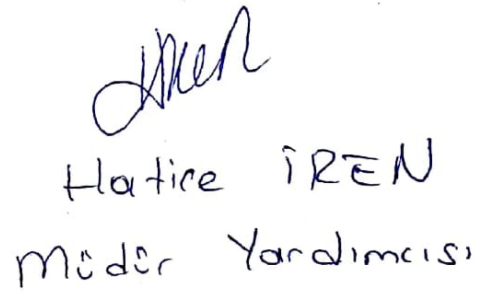 Hatice İREN
Müdür Yardımcısı